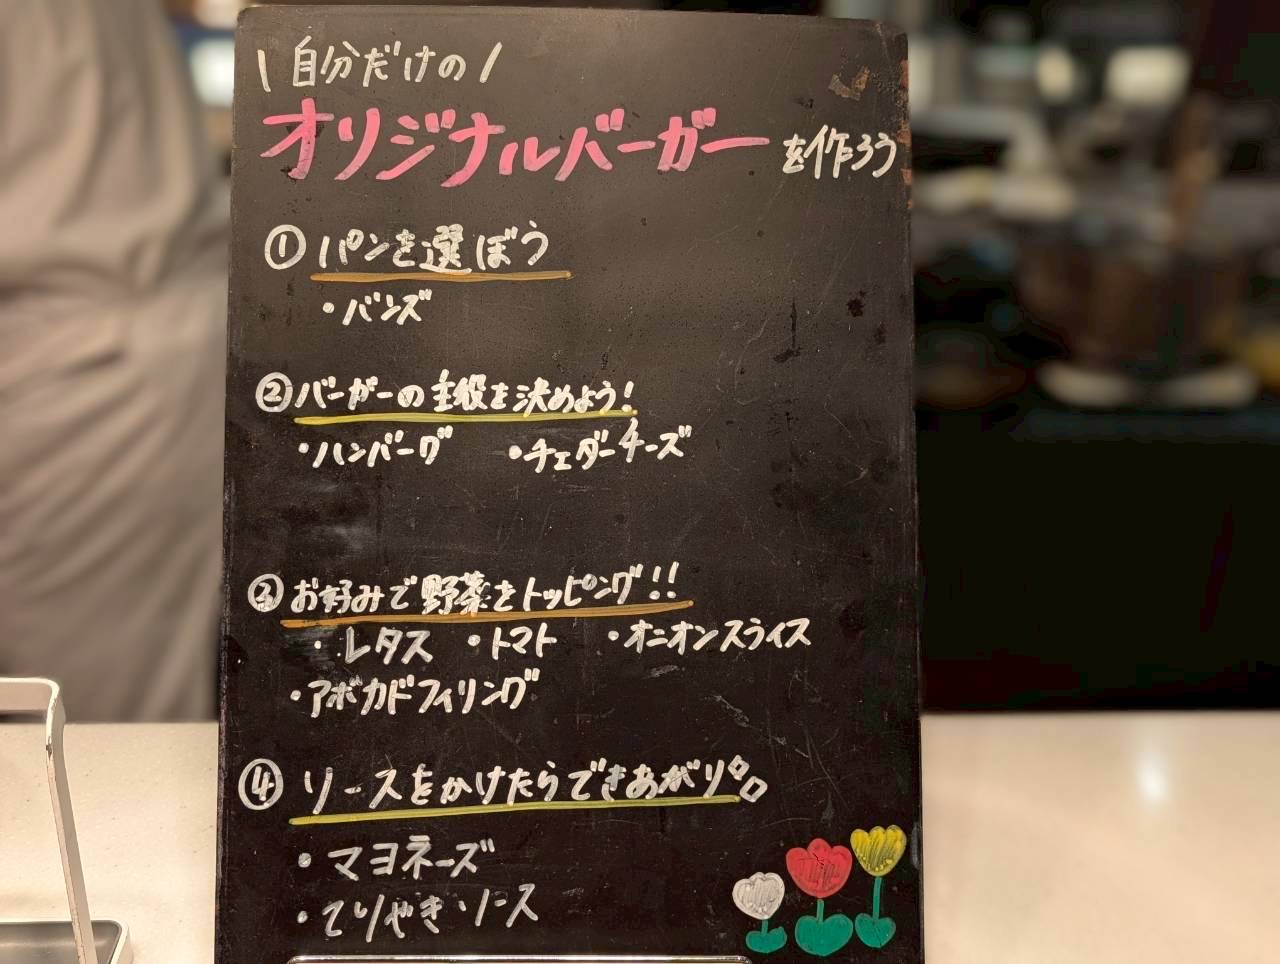 \ 自分だけの /
オリジナルバーガーを作ろう
① パンを選ぼう
・バンズ
② バーガーの主役を決めよう!
・ハンバーグ ・チェダーチーズ
③ お好みで野菜をトッピング!!
・レタス ・トマト ・オニオンスライス
・アボカドフィリング
④ ソースをかけたらできあがり
・マヨネーズ
・てりやきソース